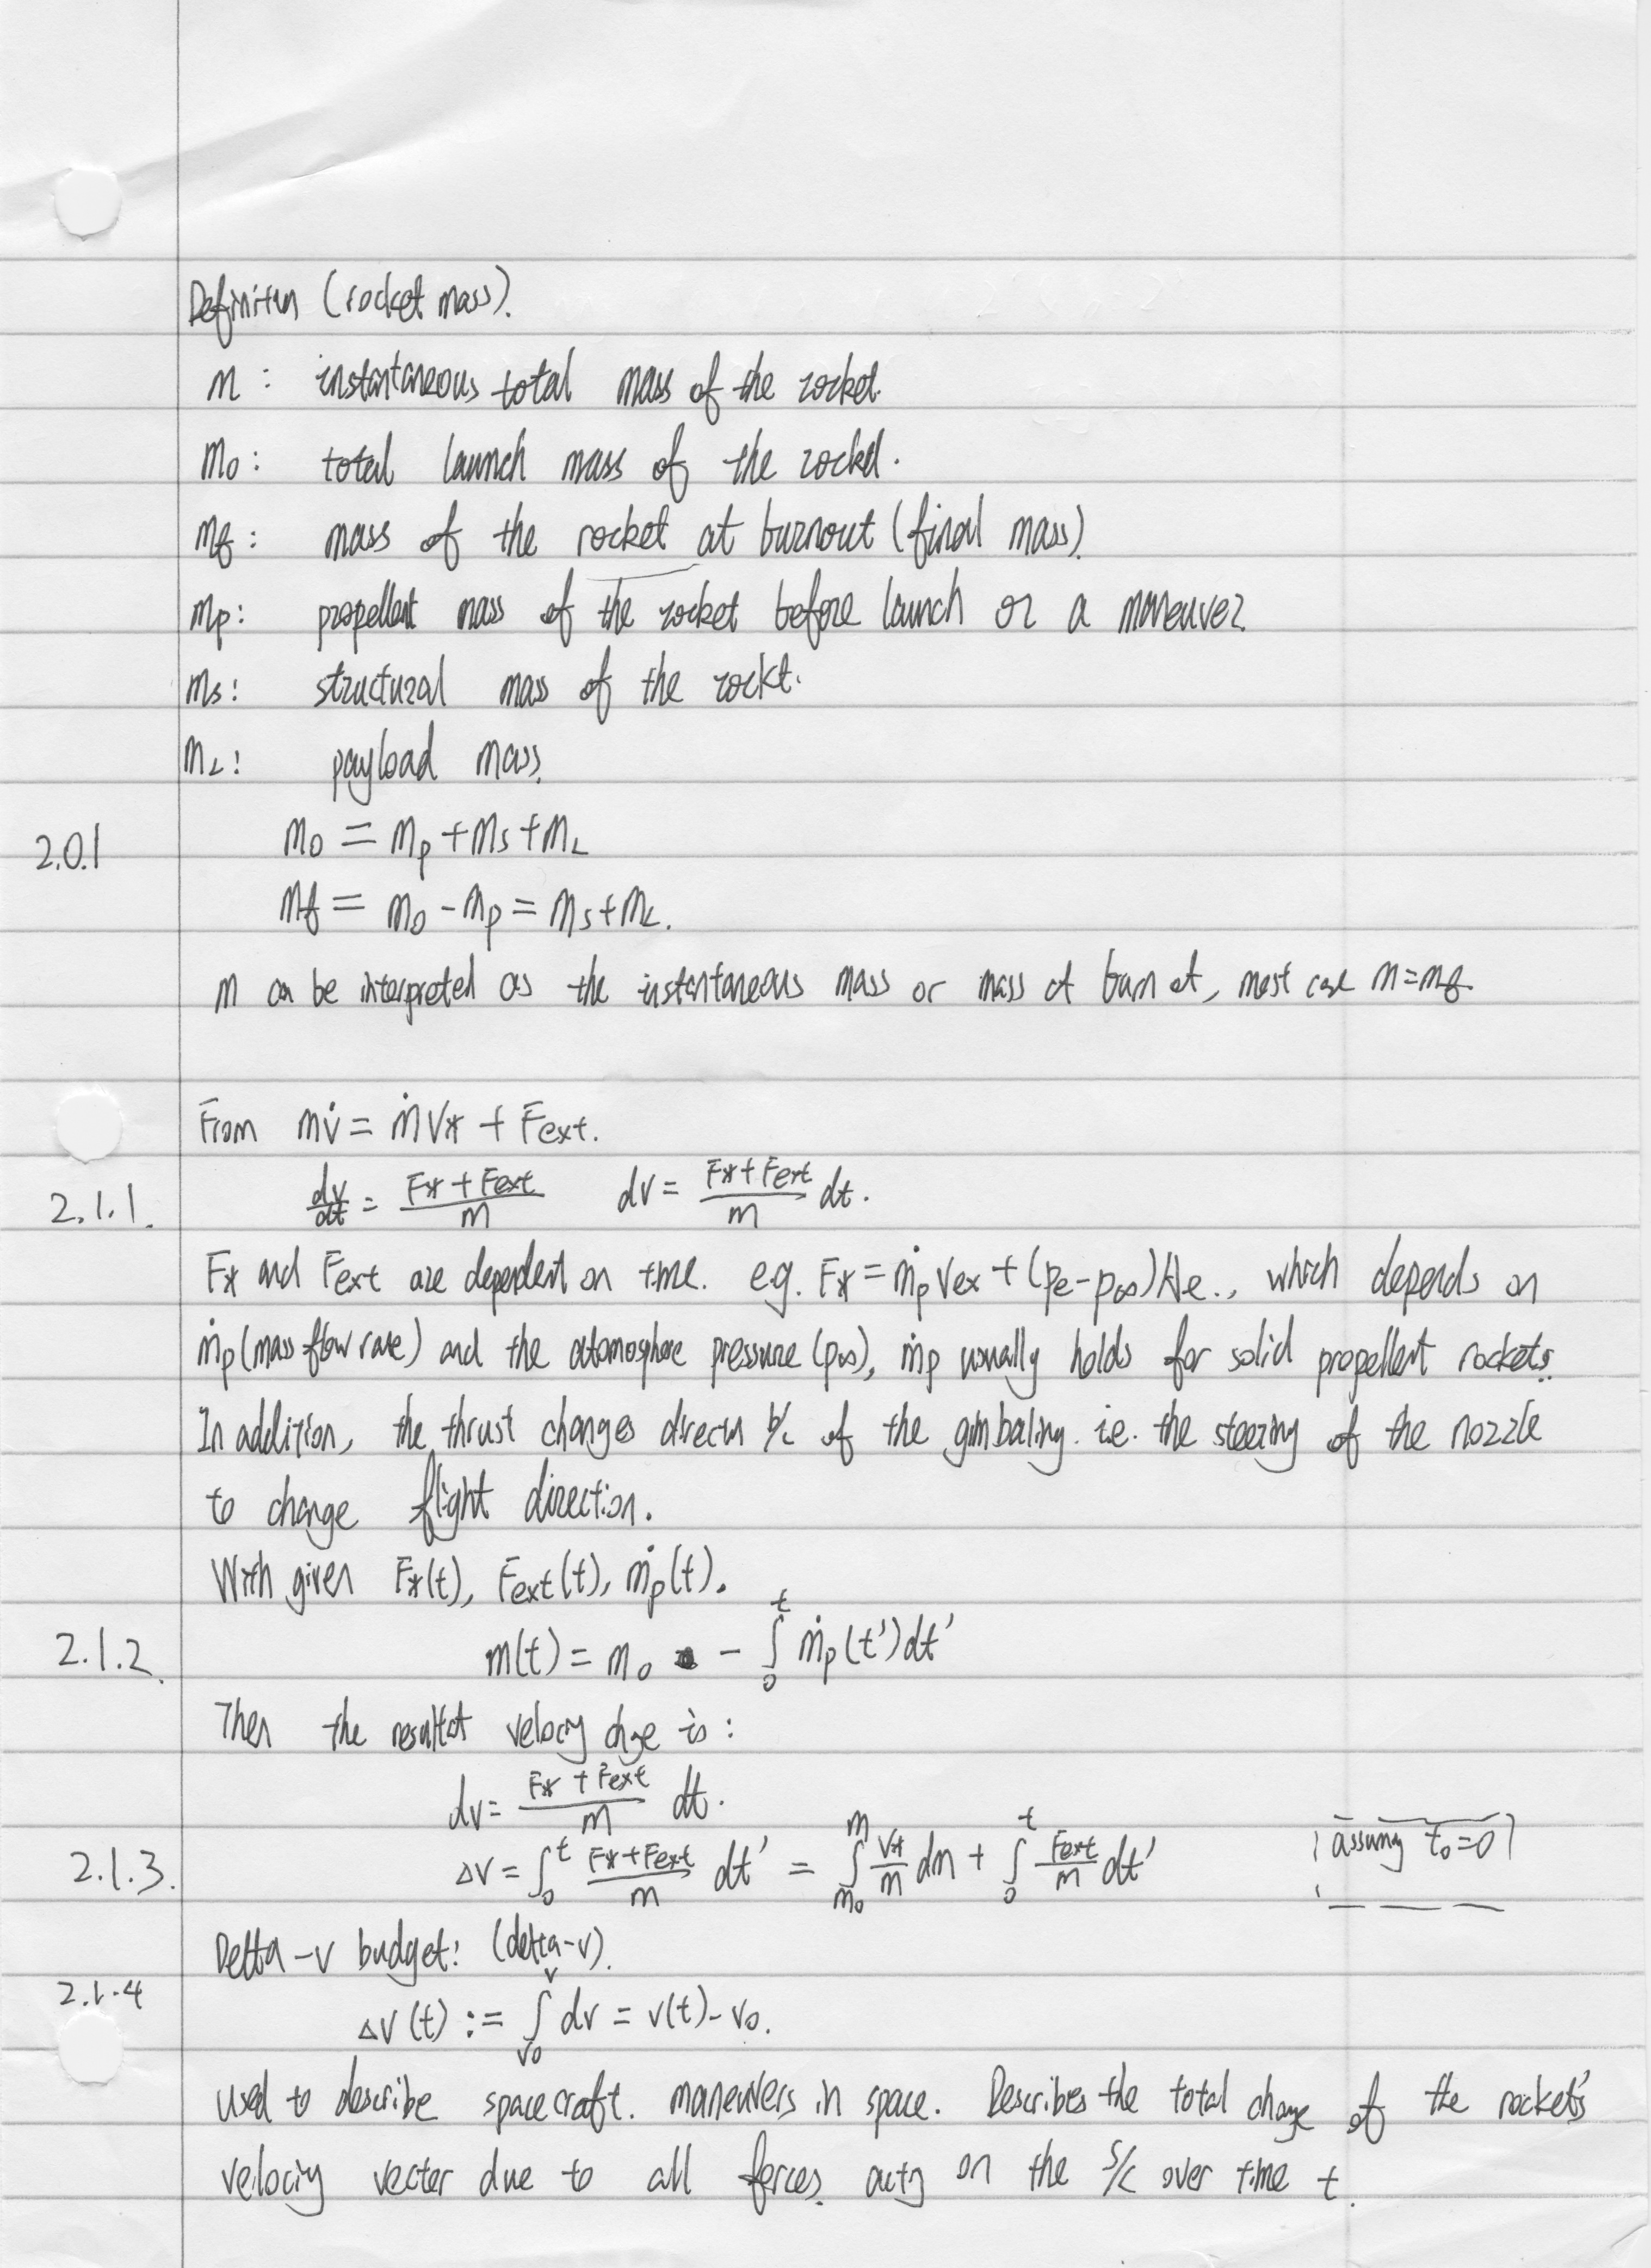 Definition (rocket mass).
m : instantaneous total mass of the rocket.
m₀ : total launch mass of the rocket.
mf : mass of the rocket at burnout (final mass)
mp : propellent mass of the rocket before launch or a maneuver
ms : structural mass of the rockt.
mL : payload mass
2.0.1 m₀ = mp + ms + mL
mf = m₀ - mp = ms + mL.
m can be interpreted as the instantaneous mass or mass at burn ot, most case m = mf.
From mv̇ = ṁv* + Fext.
2.1.1. dv/dt = (F* + Fext)/m dv = (F* + Fext)/m dt.
F* and Fext are dependent on time. e.g. F* = ṁp vex + (pe - p∞)Ae., which depends on
ṁp (mass flow rate) and the atomosphere pressure (p∞), ṁp usually holds for solid propellent rockets.
In addition, the thrust changes directn b/c of the gimbaling. i.e. the steering of the nozzle
to change flight direction.
With given F*(t), Fext(t), ṁp(t).
2.1.2. m(t) = m₀ - ∫₀ᵗ ṁp(t')dt'
Then the resultat velocity chge is :
dv = (F* + Fext)/m dt.
2.1.3. Δv = ∫₀ᵗ (F* + Fext)/m dt' = ∫_{m₀}^{m} v*/m dm + ∫₀ᵗ Fext/m dt' assumg t₀ = 0
Delta-v budget: (delta-v).
2.1.4 Δv(t) := ∫_{v₀}^{v} dv = v(t) - v₀.
used to describe space craft. maneuvers in space. Describes the total change of the rocket's
velocity vector due to all forces actg on the s/c over time t.